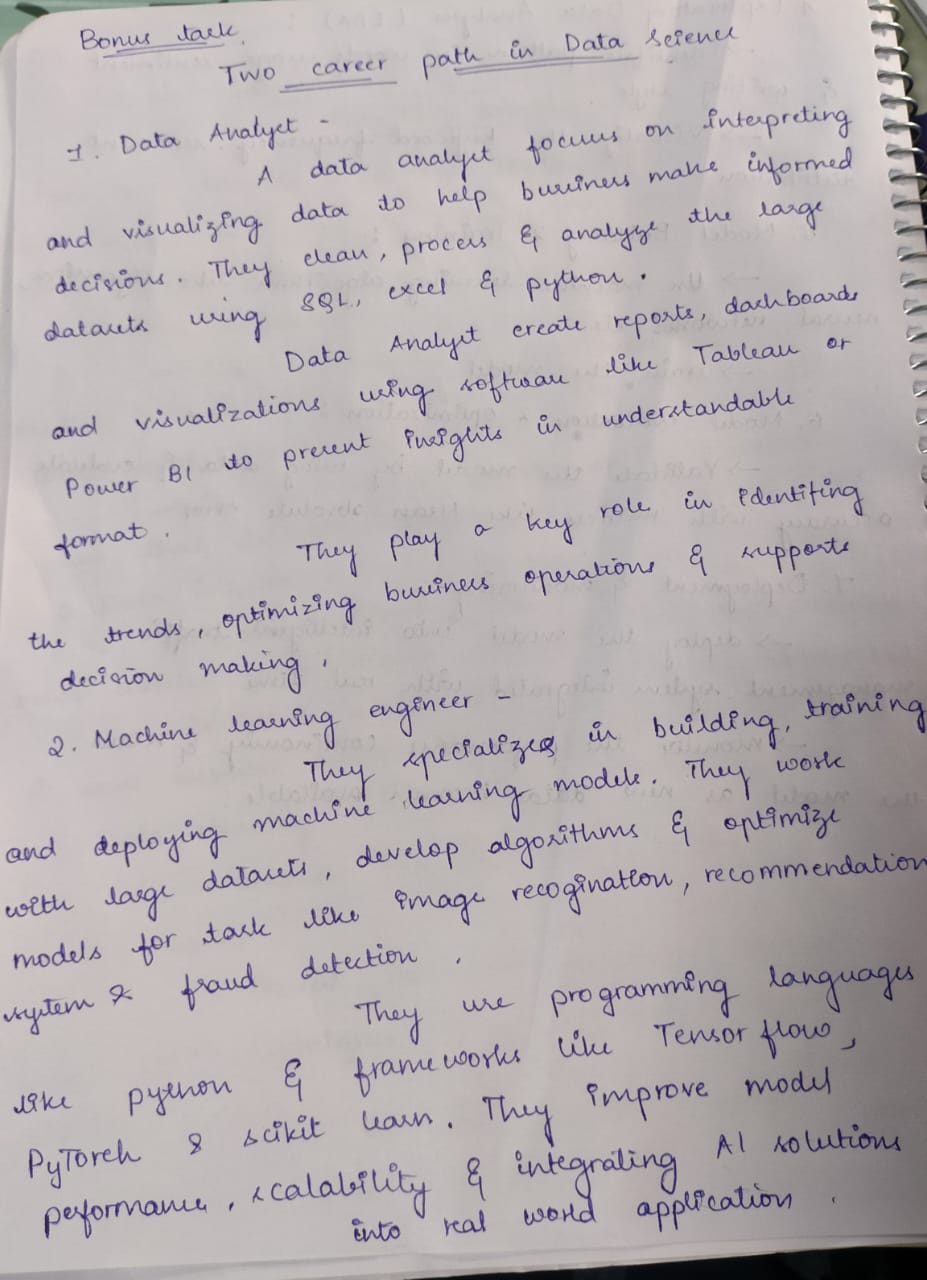 Bonus task.
Two career path in Data Science
1. Data Analyst -
A data analyst focuses on interpreting
and visualizing data to help business make informed
decisions. They clean, process & analyze the large
datasets using SQL, excel & python.
Data Analyst create reports, dashboards
and visualizations using software like Tableau or
Power BI to present insights in understandable
format.
They play a key role in identifing
the trends, optimizing business operations & supports
decision making.
2. Machine learning engineer -
They specializes in building, training
and deploying machine learning models. They work
with large datasets, develop algorithms & optimize
models for task like image recogination, recommendation
system & fraud detection.
They use programming languages
like python & frameworks like Tensor flow,
PyTorch & scikit learn. They improve model
performance, scalability & integrating AI solutions
into real world application.